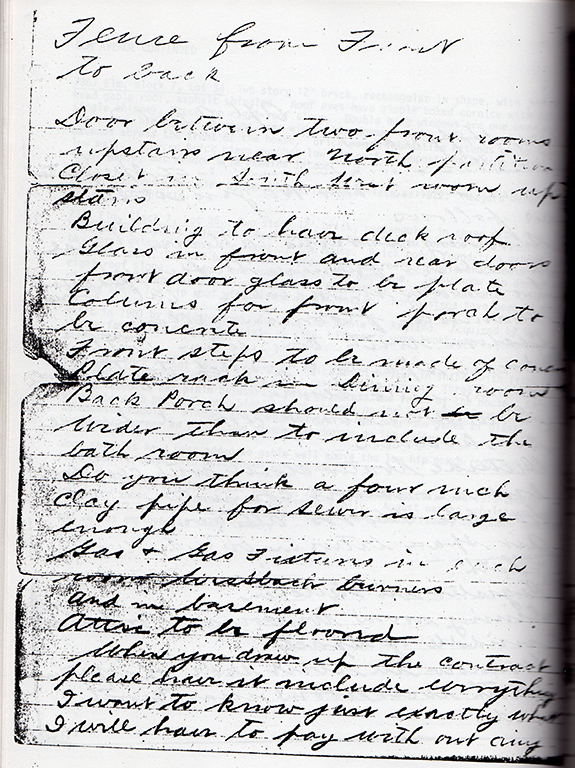 Fence from Front
to back
Door between two front rooms
upstairs near North partition
Closet in South front room up
stairs
Building to have deck roof
Glass in front and rear doors
front door glass to be plate
Columns for front porch to
be concrete
Front steps to be made of conc
Plate rack in Dining room
Back Porch should not be
wider than to include the
bath room
Do you think a four inch
clay pipe for sewer is large
enough
Gas & Gas Fixtures in each
room burners
and in basement
Attic to be floored
When you draw up the contract
please have it include everything
I want to know just exactly what
I will have to pay with out any